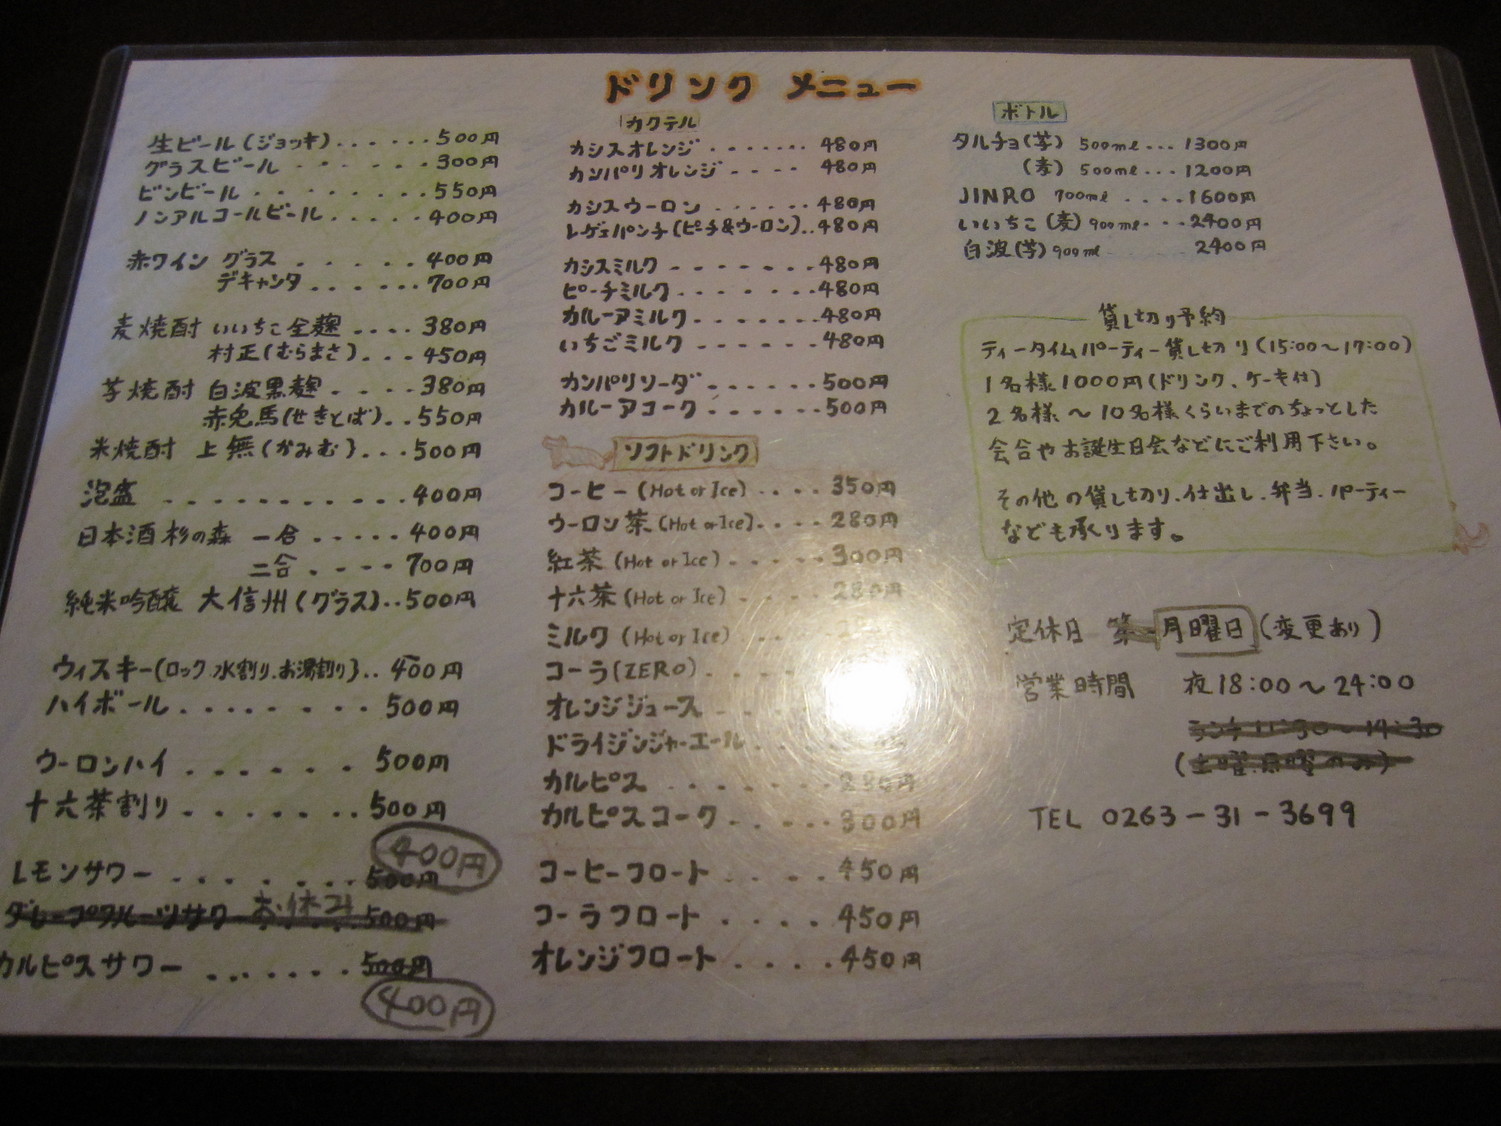 ドリンク メニュー
生ビール(ジョッキ)......500円
グラスビール ......300円
ビンビール ........550円
ノンアルコールビール.....400円
赤ワイン グラス .....400円
デキャンタ......700円
麦焼酎 いいちこ全麹....380円
村正(むらまさ)...450円
芋焼酎 白波黒麹....380円
赤兎馬(せきとば)..550円
米焼酎 上無(かみむ)...500円
泡盛 ...........400円
日本酒 杉の森 一合.....400円
二合.....700円
純米吟醸 大信州(グラス)..500円
ウィスキー(ロック.水割り.お湯割り)..400円
ハイボール.........500円
ウーロンハイ.......500円
十六茶割り.......500円
レモンサワー.......500円 400円
グレープフルーツサワー お休み 500円
カルピスサワー......500円
400円
カクテル
カシスオレンジ.......480円
カンパリオレンジ....480円
カシスウーロン......480円
レゲエパンチ(ピーチ&ウーロン)..480円
カシスミルク.......480円
ピーチミルク.......480円
カルーアミルク......480円
いちごミルク......480円
カンパリソーダ.....500円
カルーアコーク.....500円
ソフトドリンク
コーヒー(Hot or Ice)....350円
ウーロン茶(Hot or Ice)....280円
紅茶(Hot or Ice).....300円
十六茶(Hot or Ice)....280円
ミルク(Hot or Ice)
コーラ(ZERO)
オレンジジュース
ドライジンジャーエール
カルピス ......280円
カルピスコーク.....300円
コーヒーフロート....450円
コーラフロート....450円
オレンジフロート....450円
ボトル
タルチョ(芋) 500ml...1300円
(麦) 500ml...1200円
JINRO 700ml ....1600円
いいちこ(麦)900ml...2400円
白波(芋)900ml......2400円
貸し切り予約
ティータイムパーティー貸し切り(15:00〜17:00)
1名様1000円(ドリンク、ケーキ付)
2名様〜10名様くらいまでのちょっとした
会合やお誕生日会などにご利用下さい。
その他の貸し切り.仕出し.弁当.パーティー
なども承ります。
定休日 月曜日(変更あり)
営業時間 夜18:00〜24:00
ランチ11:30〜14:30
TEL 0263-31-3699